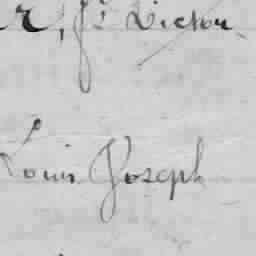 r, J.s Victor
Louis Joseph